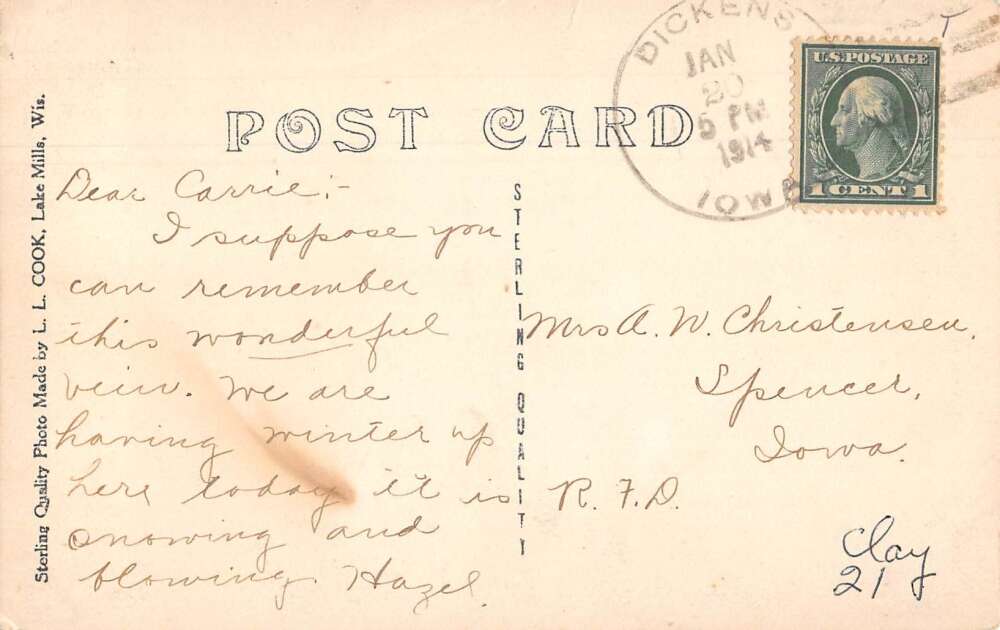 Sterling Quality Photo Made by L. L. COOK, Lake Mills, Wis.
POST CARD
DICKENS
JAN
20
5 PM
1914
IOWA
U.S. POSTAGE
1 CENT 1
Dear Carrie:-
I suppose you
can remember
this wonderful
veiw. We are
having winter up
here today it is
snowing and
blowing. Hazel.
STERLING QUALITY
Mrs A. W. Christensen,
Spencer,
Iowa.
R. F. D.
Clay
21